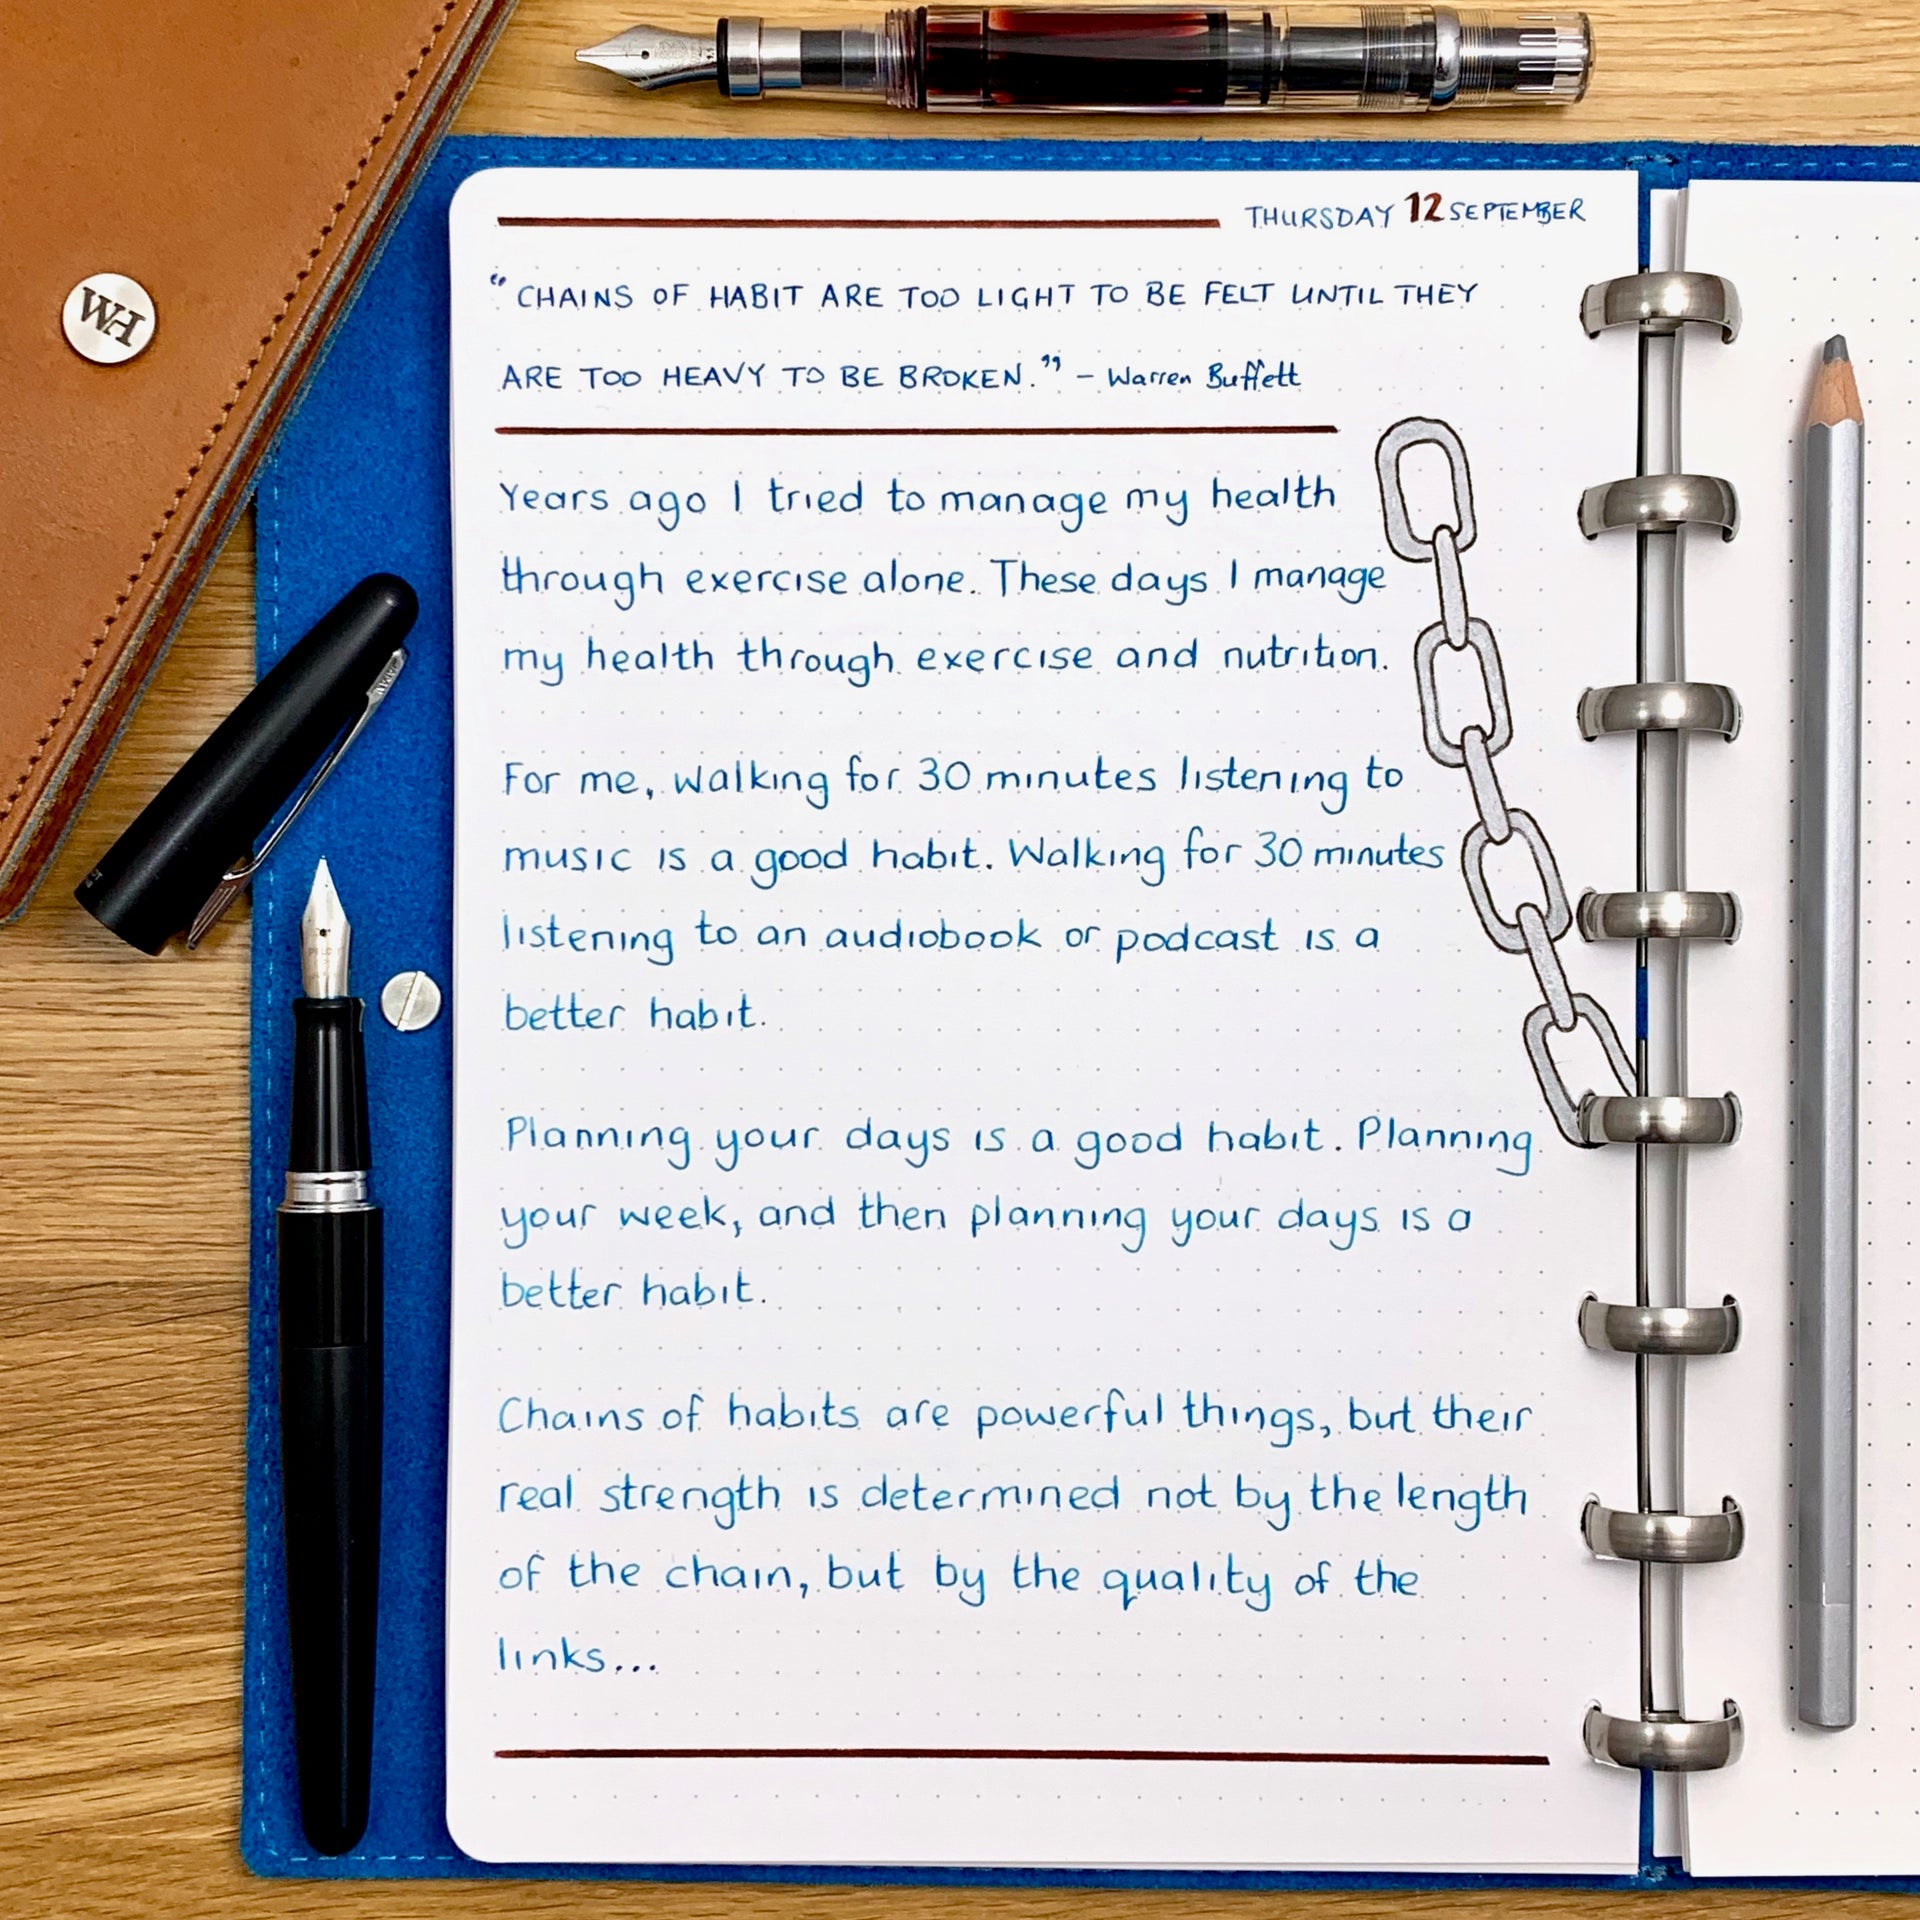 THURSDAY 12 SEPTEMBER
“CHAINS OF HABIT ARE TOO LIGHT TO BE FELT UNTIL THEY
ARE TOO HEAVY TO BE BROKEN.” – Warren Buffett
Years ago I tried to manage my health
through exercise alone. These days I manage
my health through exercise and nutrition.
For me, walking for 30 minutes listening to
music is a good habit. Walking for 30 minutes
listening to an audiobook or podcast is a
better habit.
Planning your days is a good habit. Planning
your week, and then planning your days is a
better habit.
Chains of habits are powerful things, but their
real strength is determined not by the length
of the chain, but by the quality of the
links...
WH